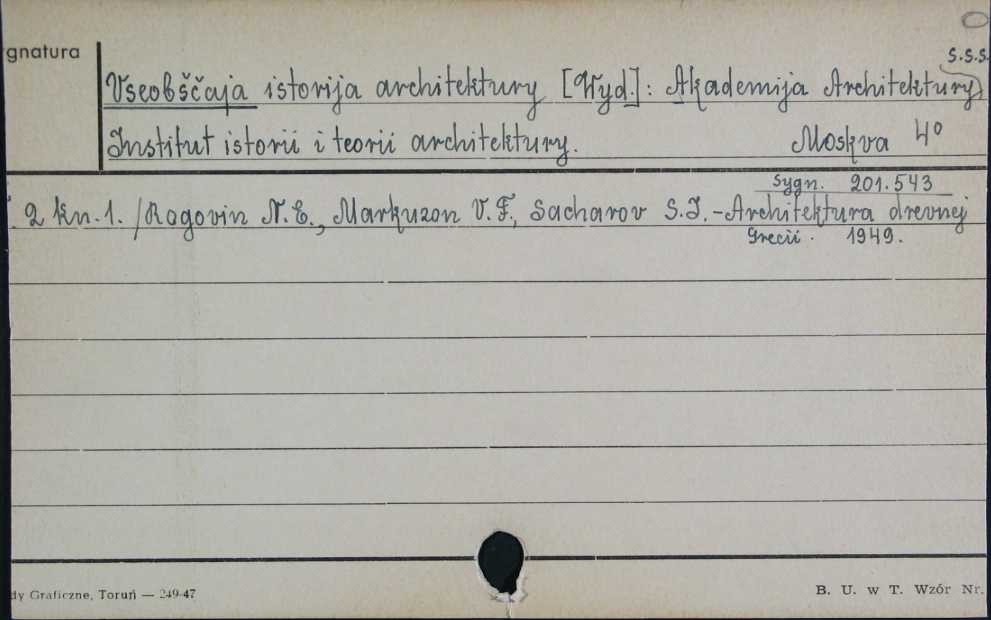 gnatura
S.S.S.
Vseobščaja istorija architektury [Wyd.]: Akademija Architektury
Institut istorii i teorii architektury. Moskva 4°
Sygn. 201.543
. 2 kn. 1. /Rogovin N.E., Markuzon V.F., Sacharov S.I. - Architektura drevnej
Grecii. 1949.
dy Graficzne, Toruń — 249-47
B. U. w T. Wzór Nr.